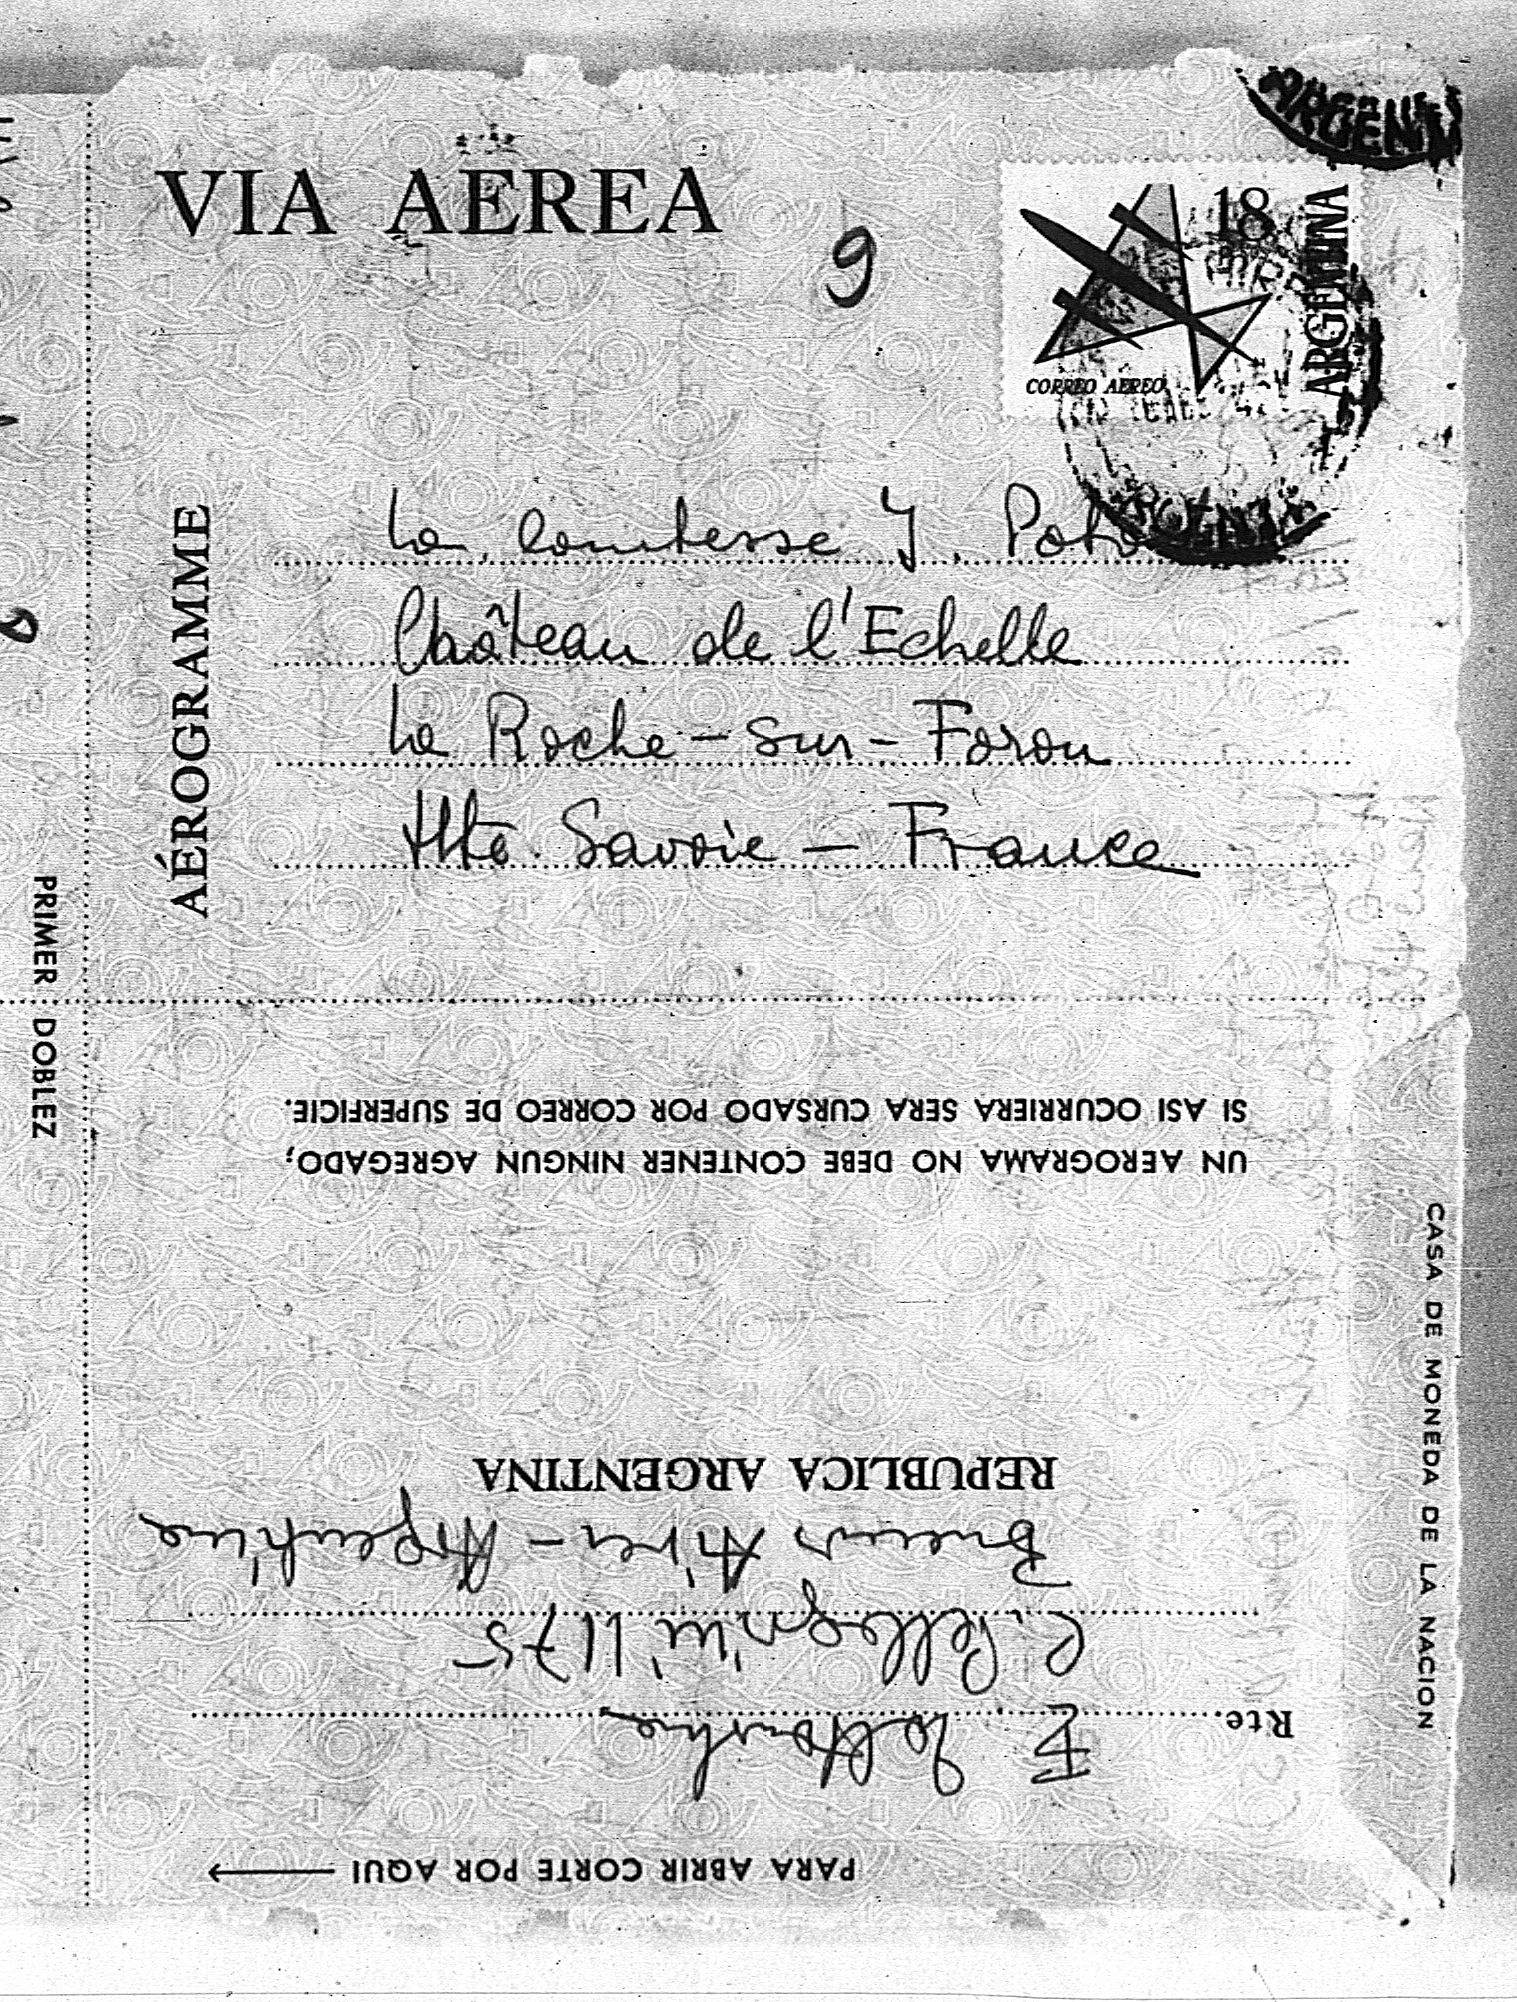 VIA AEREA
9
18
ARGENTINA
CORREO AEREO
ARGENTINA
AÉROGRAMME
La comtesse J.
Château de l'Echelle
La Roche-sur-Foron
Hte Savoie - France
PRIMER DOBLEZ
UN AEROGRAMA NO DEBE CONTENER NINGUN AGREGADO;
SI ASI OCURRIERA SERA CURSADO POR CORREO DE SUPERFICIE.
CASA DE MONEDA DE LA NACION
PARA ABRIR CORTE POR AQUI
Rte. E
C. Pellegrini 1175
Buenos Aires - Argentina
REPUBLICA ARGENTINA